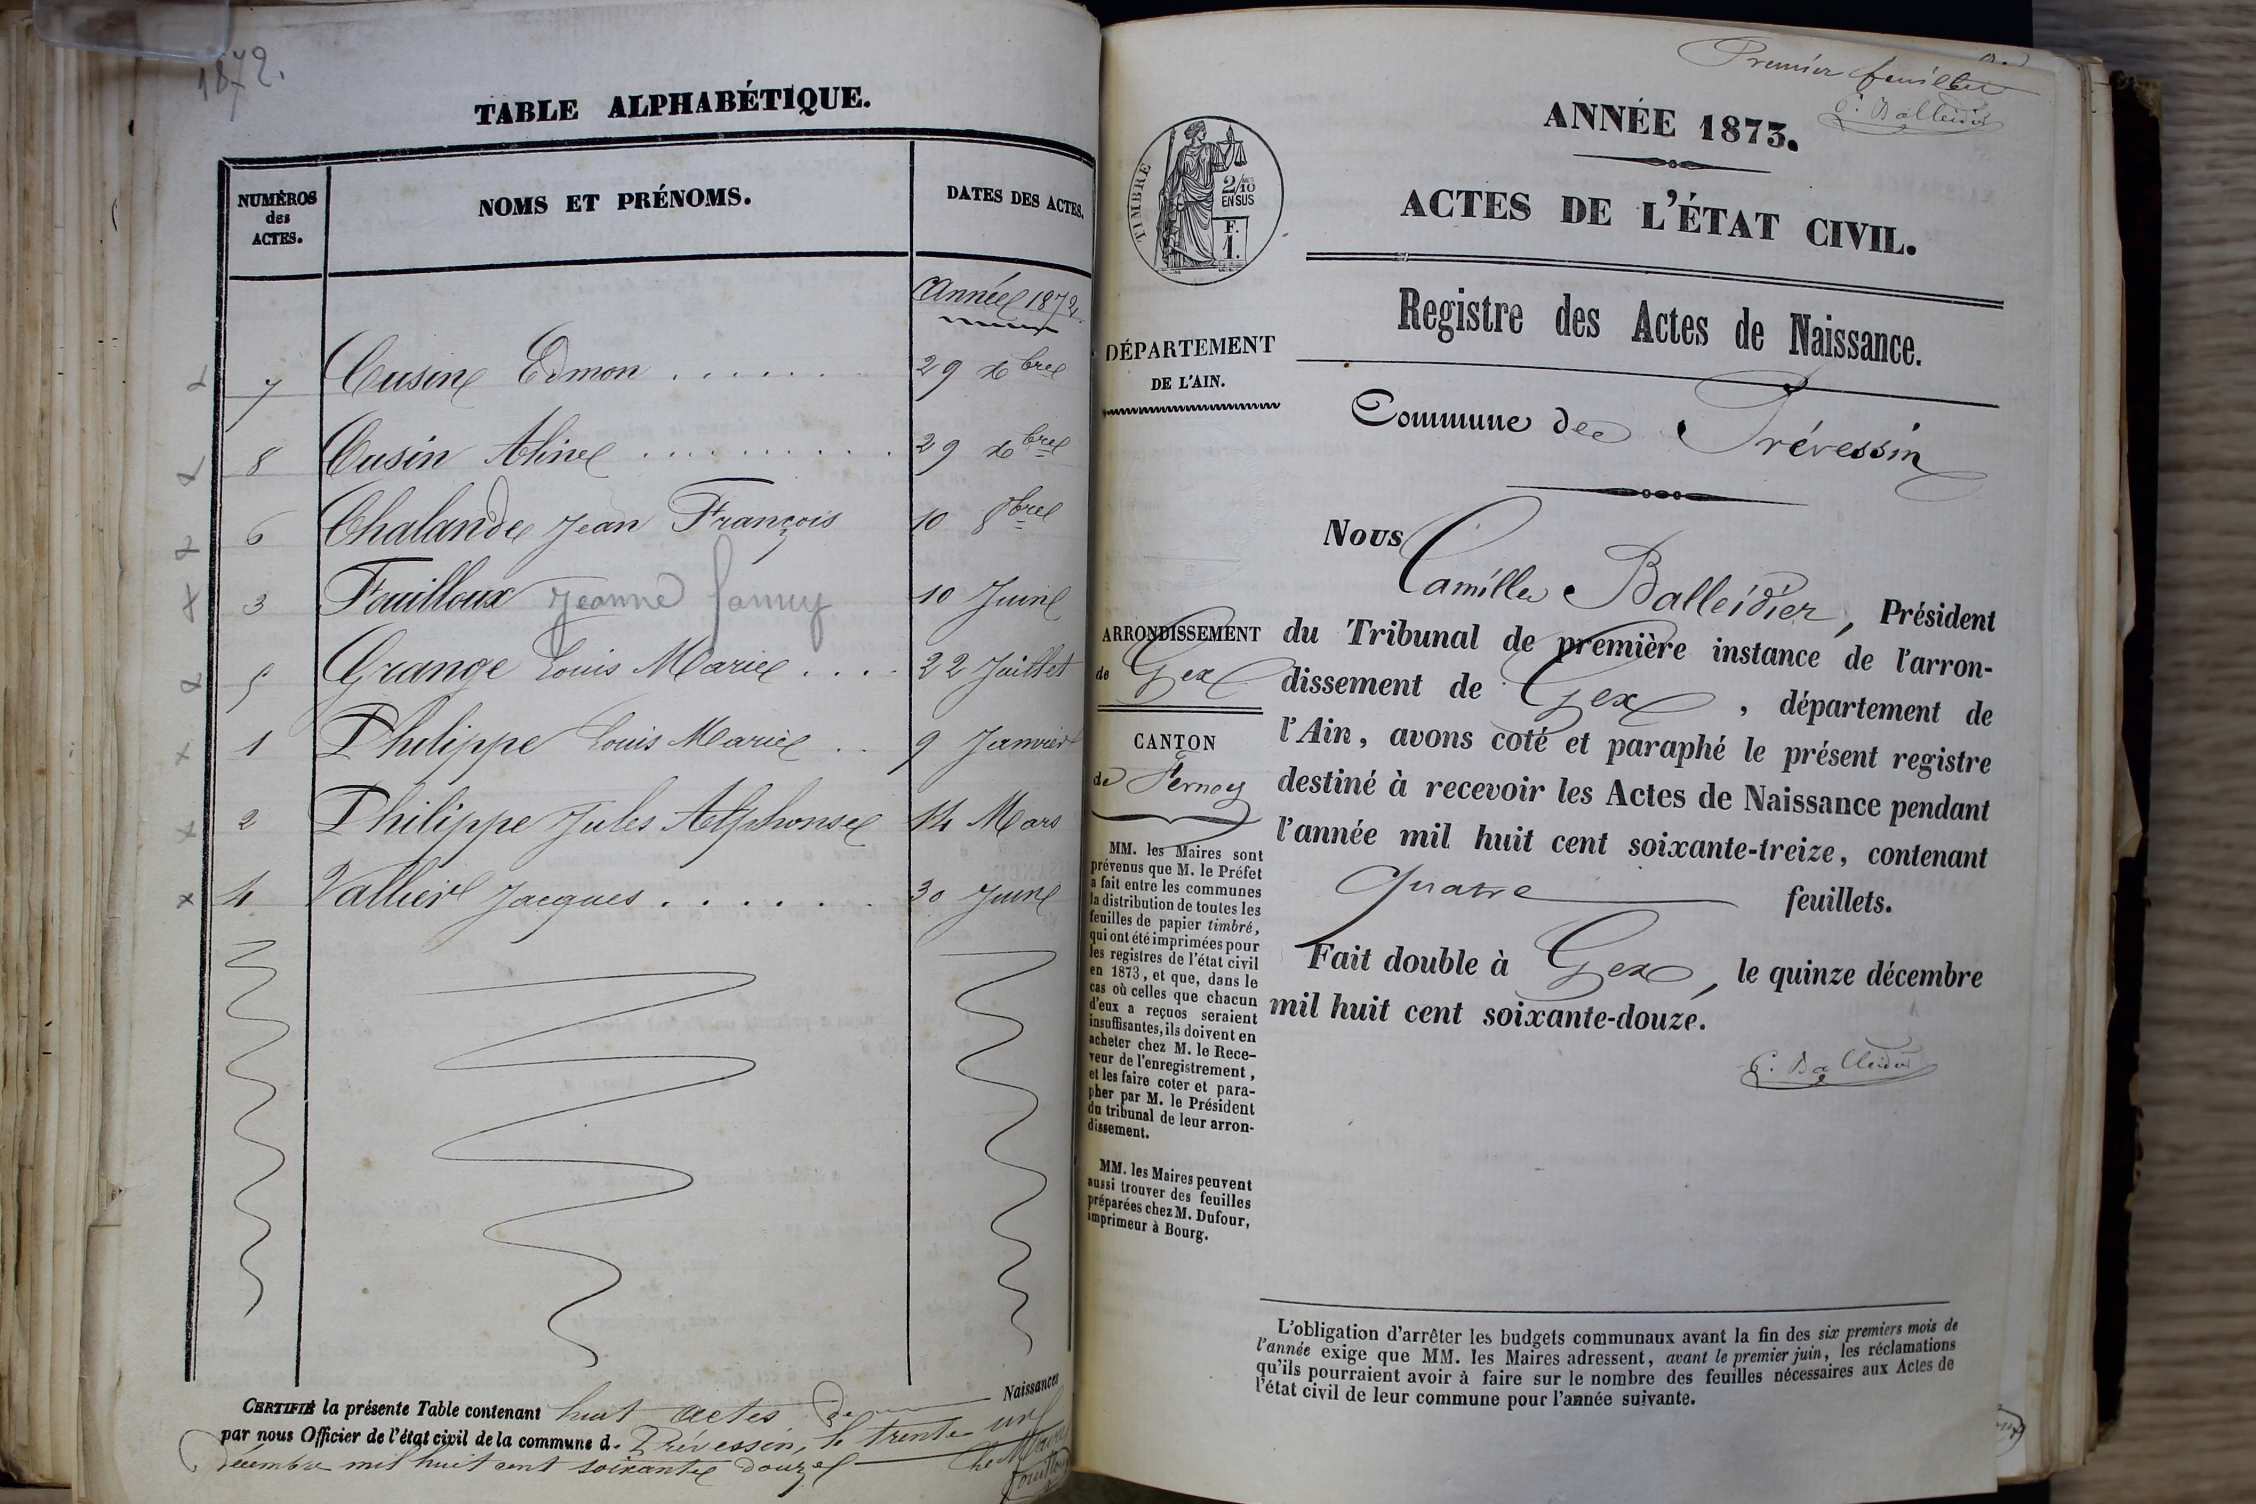 1872.
TABLE ALPHABÉTIQUE.
NUMÉROS
des
ACTES.
NOMS ET PRÉNOMS.
DATES DES ACTES.
Année 1872.
7 Cusin Edmon . . . . . . . 29 xbre
8 Cusin Aline . . . . . . . . . 29 xbre
6 Chalande Jean François 10 8bre
3 Fouilloux Jeanne fanny 10 Juin
5 Grange Louis Marie . . . . 22 Juillet
1 Philippe Louis Marie . . 9 Janvier
2 Philippe Jules Alphonse 14 Mars
4 Vallier Jacques . . . . . . . 30 Juin
CERTIFIÉ la présente Table contenant huit actes de Naissances
par nous Officier de l'état civil de la commune d. Prévessin, le trente un
décembre mil huit cent soixante douze
Le Maire
Premier feuillet
C. Balleidier
ANNÉE 1873.
TIMBRE
2/10
EN SUS
F.
1.
ACTES DE L'ÉTAT CIVIL.
Registre des Actes de Naissance.
DÉPARTEMENT
DE L'AIN.
Commune de Prévessin
ARRONDISSEMENT
de Gex
CANTON
de Ferney
MM. les Maires sont
prévenus que M. le Préfet
a fait entre les communes
la distribution de toutes les
feuilles de papier timbré,
qui ont été imprimées pour
les registres de l'état civil
en 1873, et que, dans le
cas où celles que chacun
d'eux a reçuos seraient
insuffisantes, ils doivent en
acheter chez M. le Rece-
veur de l'enregistrement,
et les faire coter et para-
pher par M. le Président
du tribunal de leur arron-
dissement.
MM. les Maires peuvent
aussi trouver des feuilles
préparées chez M. Dufour,
imprimeur à Bourg.
Nous Camille Balleidier, Président
du Tribunal de première instance de l'arron-
dissement de Gex, département de
l'Ain, avons coté et paraphé le présent registre
destiné à recevoir les Actes de Naissance pendant
l'année mil huit cent soixante-treize, contenant
quatre feuillets.
Fait double à Gex, le quinze décembre
mil huit cent soixante-douze.
C. Balleidier
L'obligation d'arrêter les budgets communaux avant la fin des six premiers mois de
l'année exige que MM. les Maires adressent, avant le premier juin, les réclamations
qu'ils pourraient avoir à faire sur le nombre des feuilles nécessaires aux Actes de
l'état civil de leur commune pour l'année suivante.